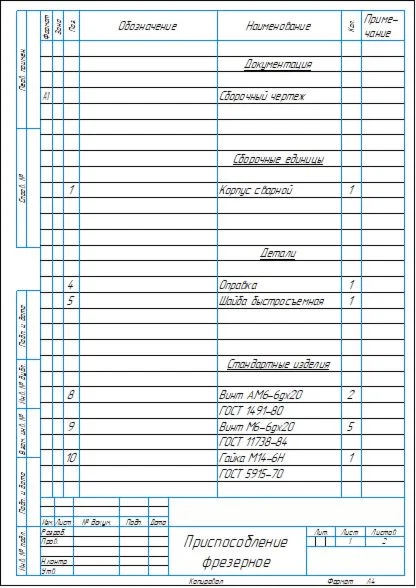 Формат
Зона
Поз.
Обозначение
Наименование
Кол.
Приме-
чание
Перв. примен.
Документация
А1 Сборочный чертеж
Справ. №
Сборочные единицы
1 Корпус сварной 1
Детали
4 Оправка 1
5 Шайба быстросъемная 1
Подп. и дата
Инв. № дубл.
Взам. инв. №
Подп. и дата
Инв. № подл.
Стандартные изделия
8 Винт АМ6-6gx20 2
ГОСТ 1491-80
9 Винт М6-6gx20 5
ГОСТ 11738-84
10 Гайка М14-6Н 1
ГОСТ 5915-70
Изм. Лист № докум. Подп. Дата
Разраб.
Пров.
Н.контр.
Утв.
Приспособление
фрезерное
Лит. Лист Листов
1 2
Копировал Формат А4